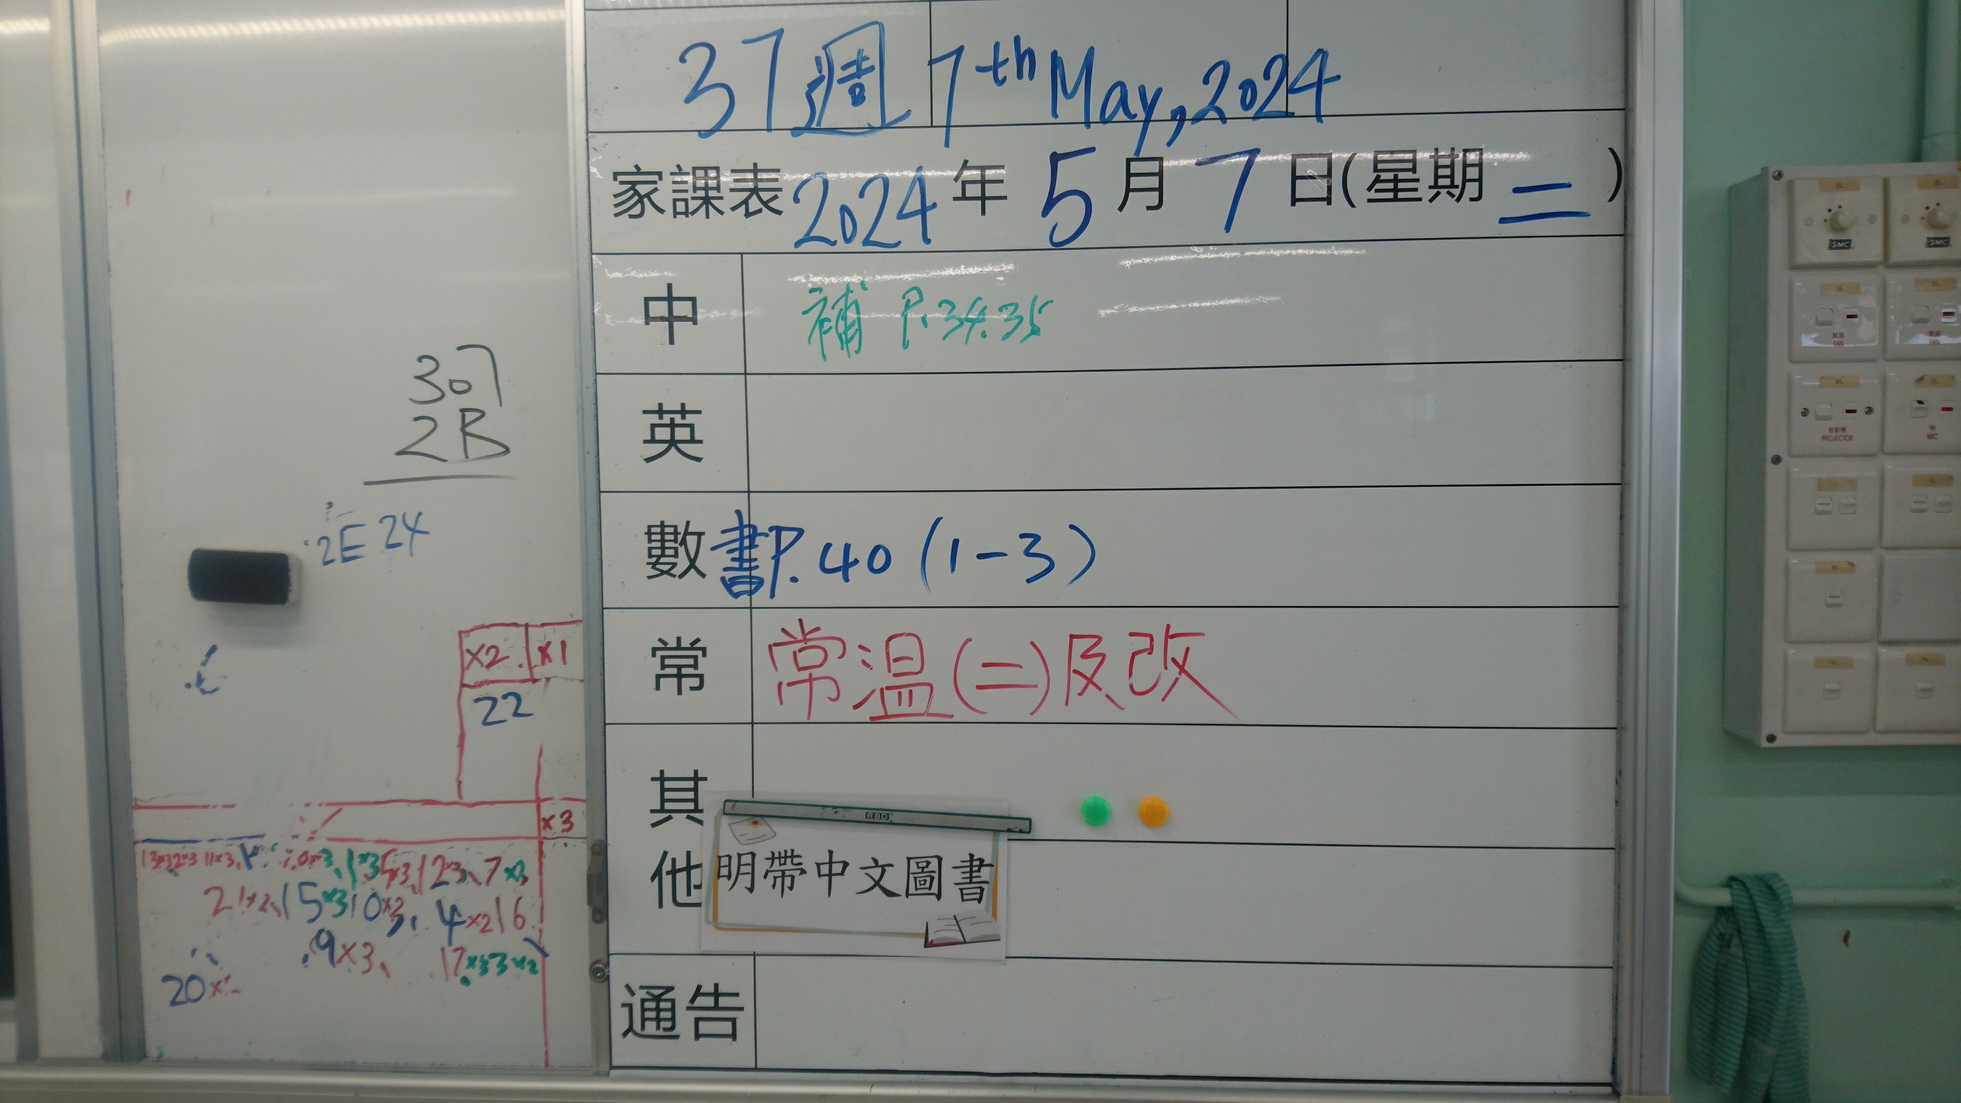 37週 7th May, 2024
家課表 2024年 5月 7日(星期二)
中 補 P.34.35
英
數 書P.40 (1-3)
常 常溫(二)及改
其他
RBD
明帶中文圖書
通告
307
2B
2E 24
x2. x1
22
x3
15x3
4x2 16
9x3
20x
SMC
SMC
FAN
FAN
PROJECTOR
MC